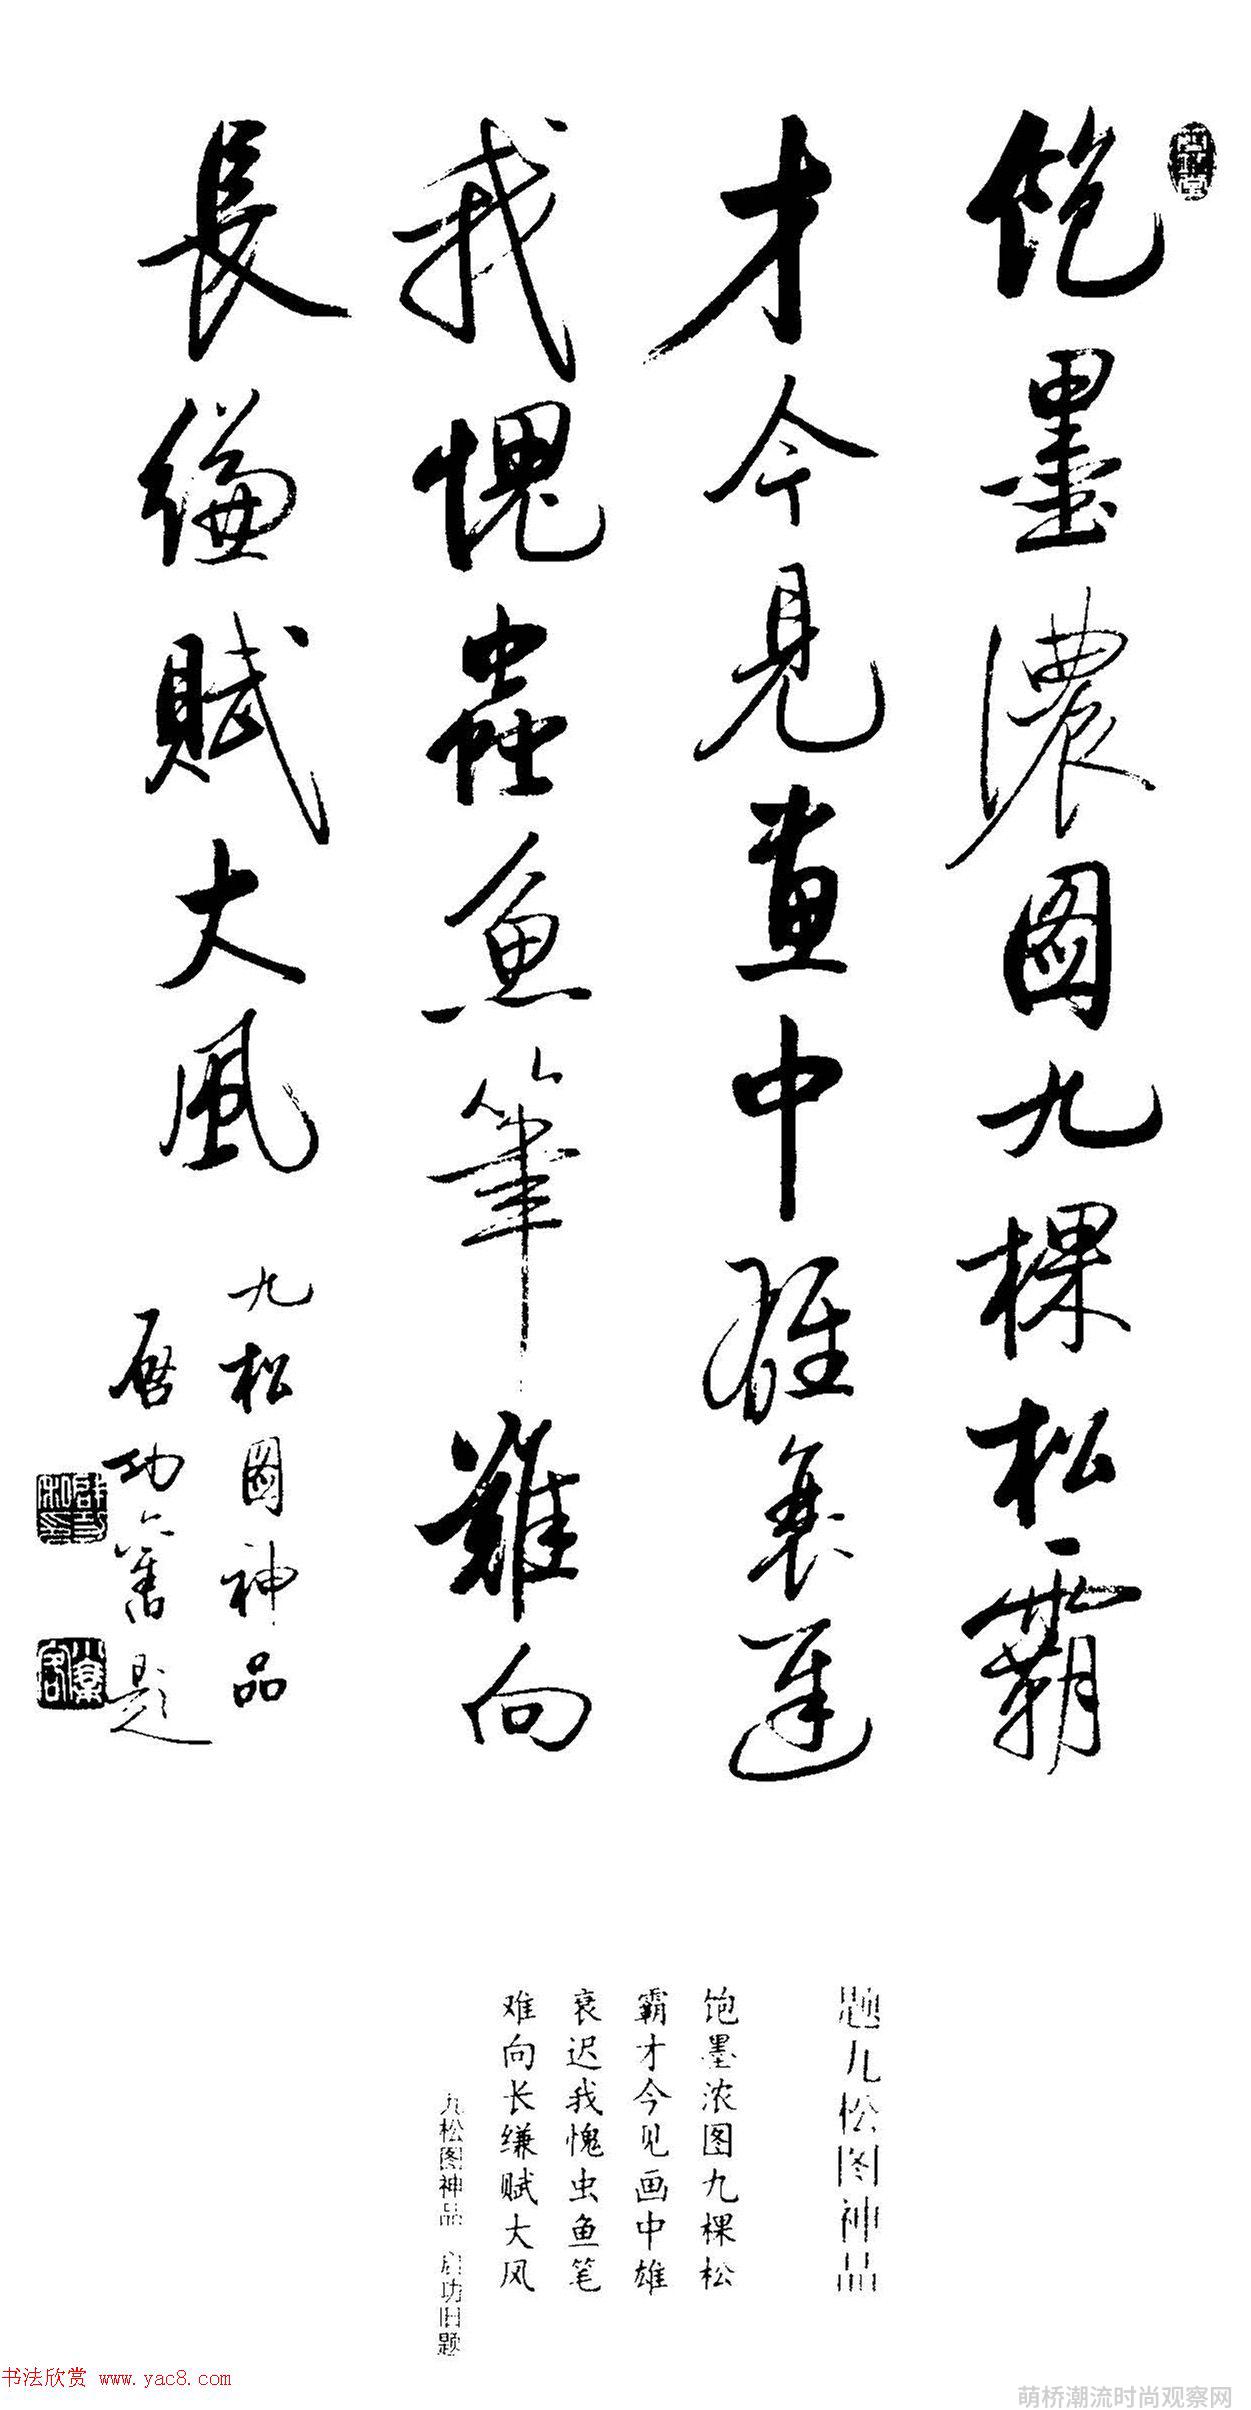 饱墨濃圖九棵松霸
才今見畫中雄衰遲
我愧蟲魚筆難向
長縑賦大風
九松圖神品
启功舊題
题九松图神品
饱墨浓图九棵松
霸才今见画中雄
衰迟我愧虫鱼笔
难向长缣赋大风
九松图神品 启功旧题
书法欣赏 www.yac8.com
萌桥潮流时尚观察网